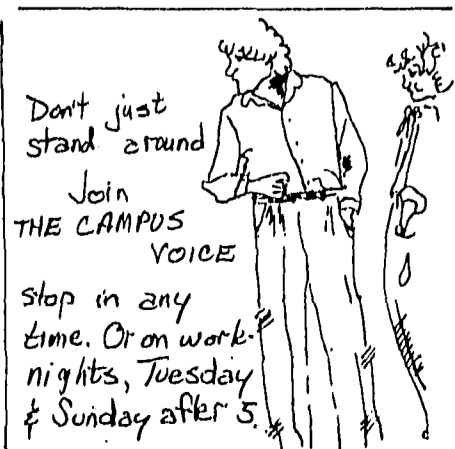 Don't just
stand around
Join
THE CAMPUS
VOICE
stop in any
time. Or on work-
nights, Tuesday
& Sunday after 5.